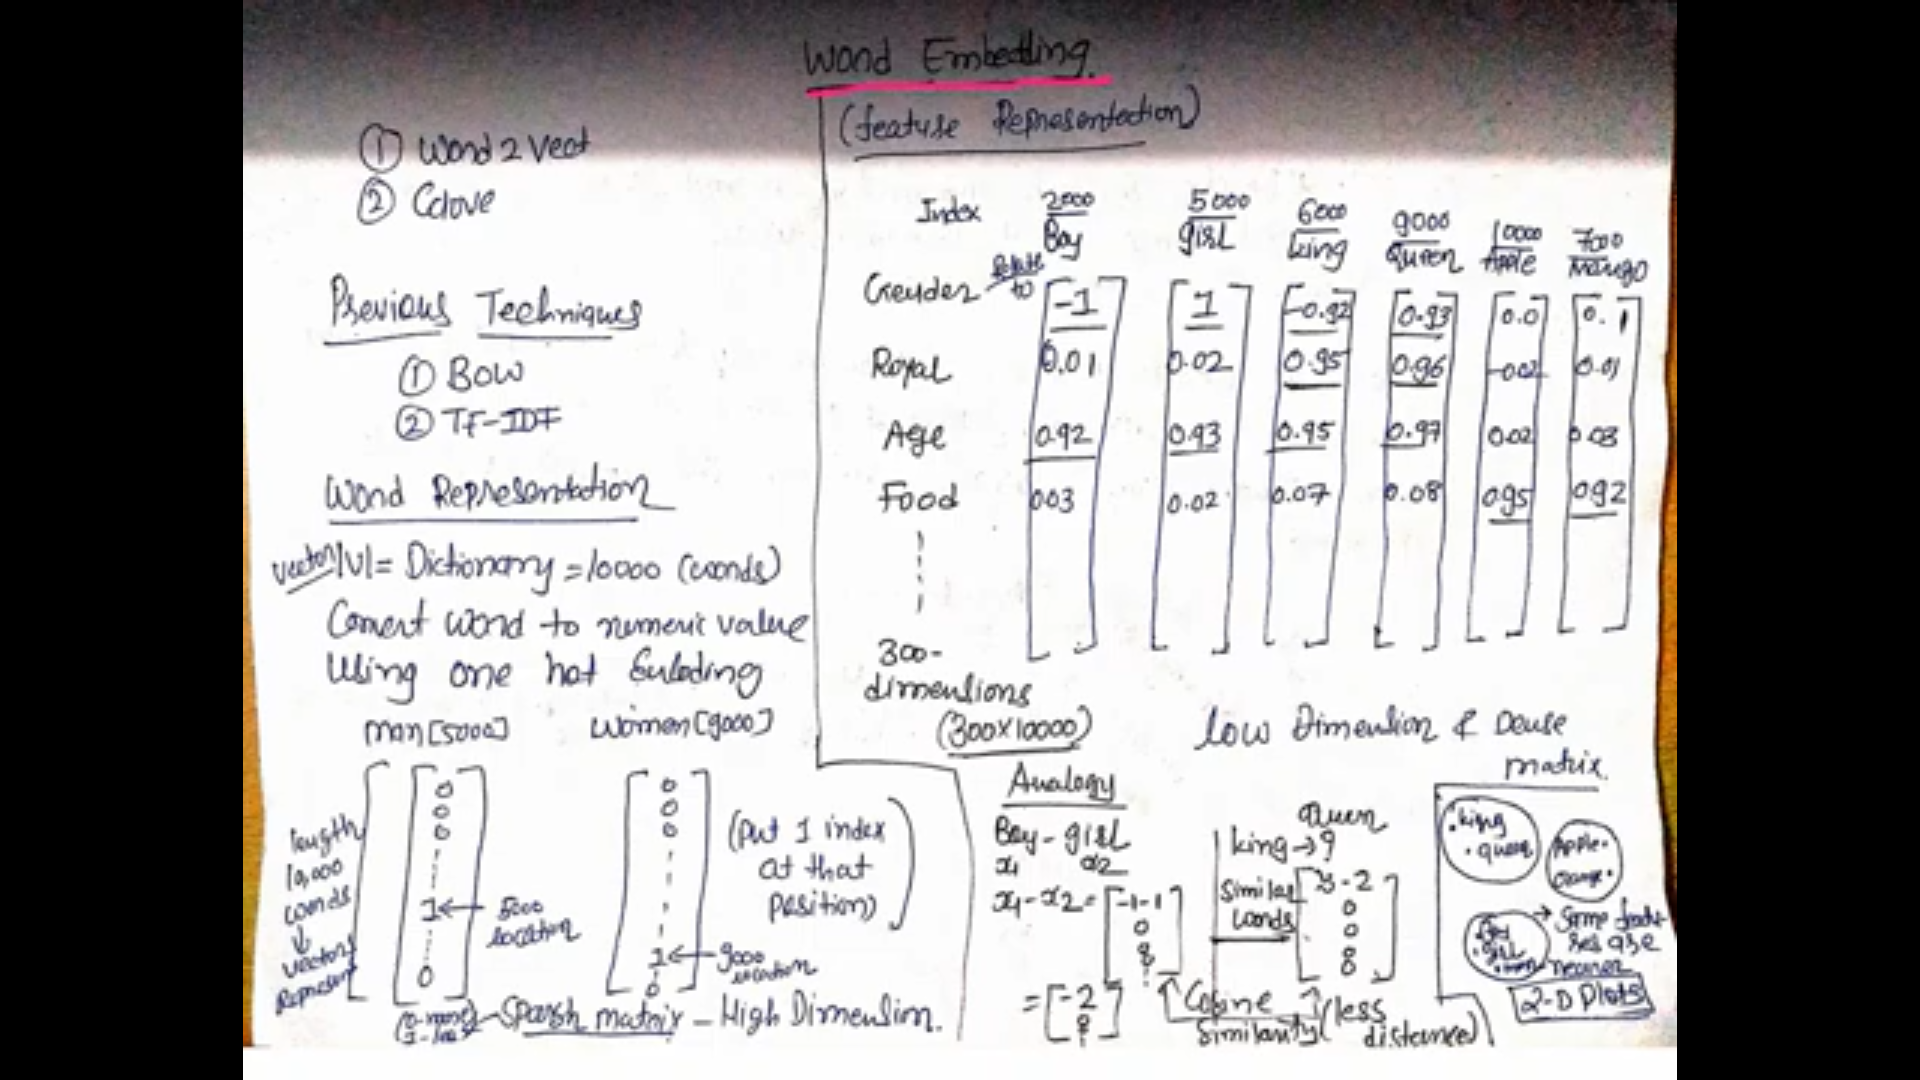 Word Embedding.
① Word 2 Vect
② Glove
Previous Techniques
① BOW
② TF-IDF
Word Representation
vector |V| = Dictionary = 10000 (words)
Convert word to numeric value
Using one hot Encoding
man[5000]
women[9000]
length
10,000
words
↓
vectors
Represent
0
0
0
1 ← 5000
location
0
0
0
0
1 ← 9000
location
0
(put 1 index
at that
position)
Sparsh matrix - High Dimension.
(feature Representation)
Index 2000 5000 6000 9000 10000 7000
Boy girl king Queen Apple Mango
Gender Relate to -1 1 -0.92 0.93 0.0 0.1
Royal 0.01 0.02 0.95 0.96 -0.02 0.01
Age 0.92 0.93 0.95 0.97 0.02 0.03
Food 0.03 0.02 0.07 0.08 0.95 0.92
300-
dimensions
(300x10000)
low Dimension & Dense
matrix.
Analogy
Boy - girl
x1 x2
x1-x2 = -1-1
0
= -2
Queen
king → ?
similar
words
-2
0
0
Cosine
similarity (less
distance)
.king
.queen
Apple.
orange.
girl
→ Same featu-
res are
nearer
2-D Plots